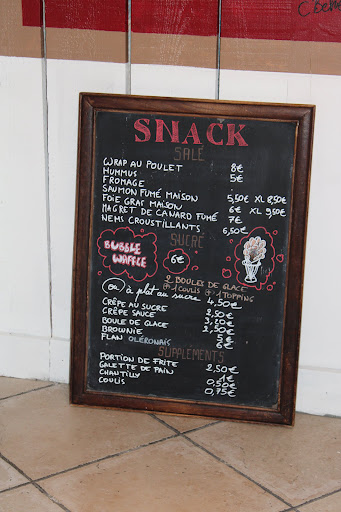 C. BEN
SNACK
SALÉ
WRAP AU POULET 8€
HUMMUS 5€
FROMAGE
SAUMON FUMÉ MAISON 5,50€ XL 8,50€
FOIE GRAS MAISON 6€ XL 9,50€
MAGRET DE CANARD FUMÉ 7€
NEMS CROUSTILLANTS 6,50€
SUCRÉ
BUBBLE
WAFFLE
6€
2 BOULES DE GLACE
+ 1 COULIS + 1 TOPPING
(ou) à plat au sucre 4,50€
CRÊPE AU SUCRE 2,50€
CRÊPE SAUCE 3,50€
BOULE DE GLACE 2,50€
BROWNIE 5€
FLAN OLÉRONAIS 6€
SUPPLEMENTS
PORTION DE FRITE 2,50€
GALETTE DE PAIN 1€
CHANTILLY 0,50€
COULIS 0,75€